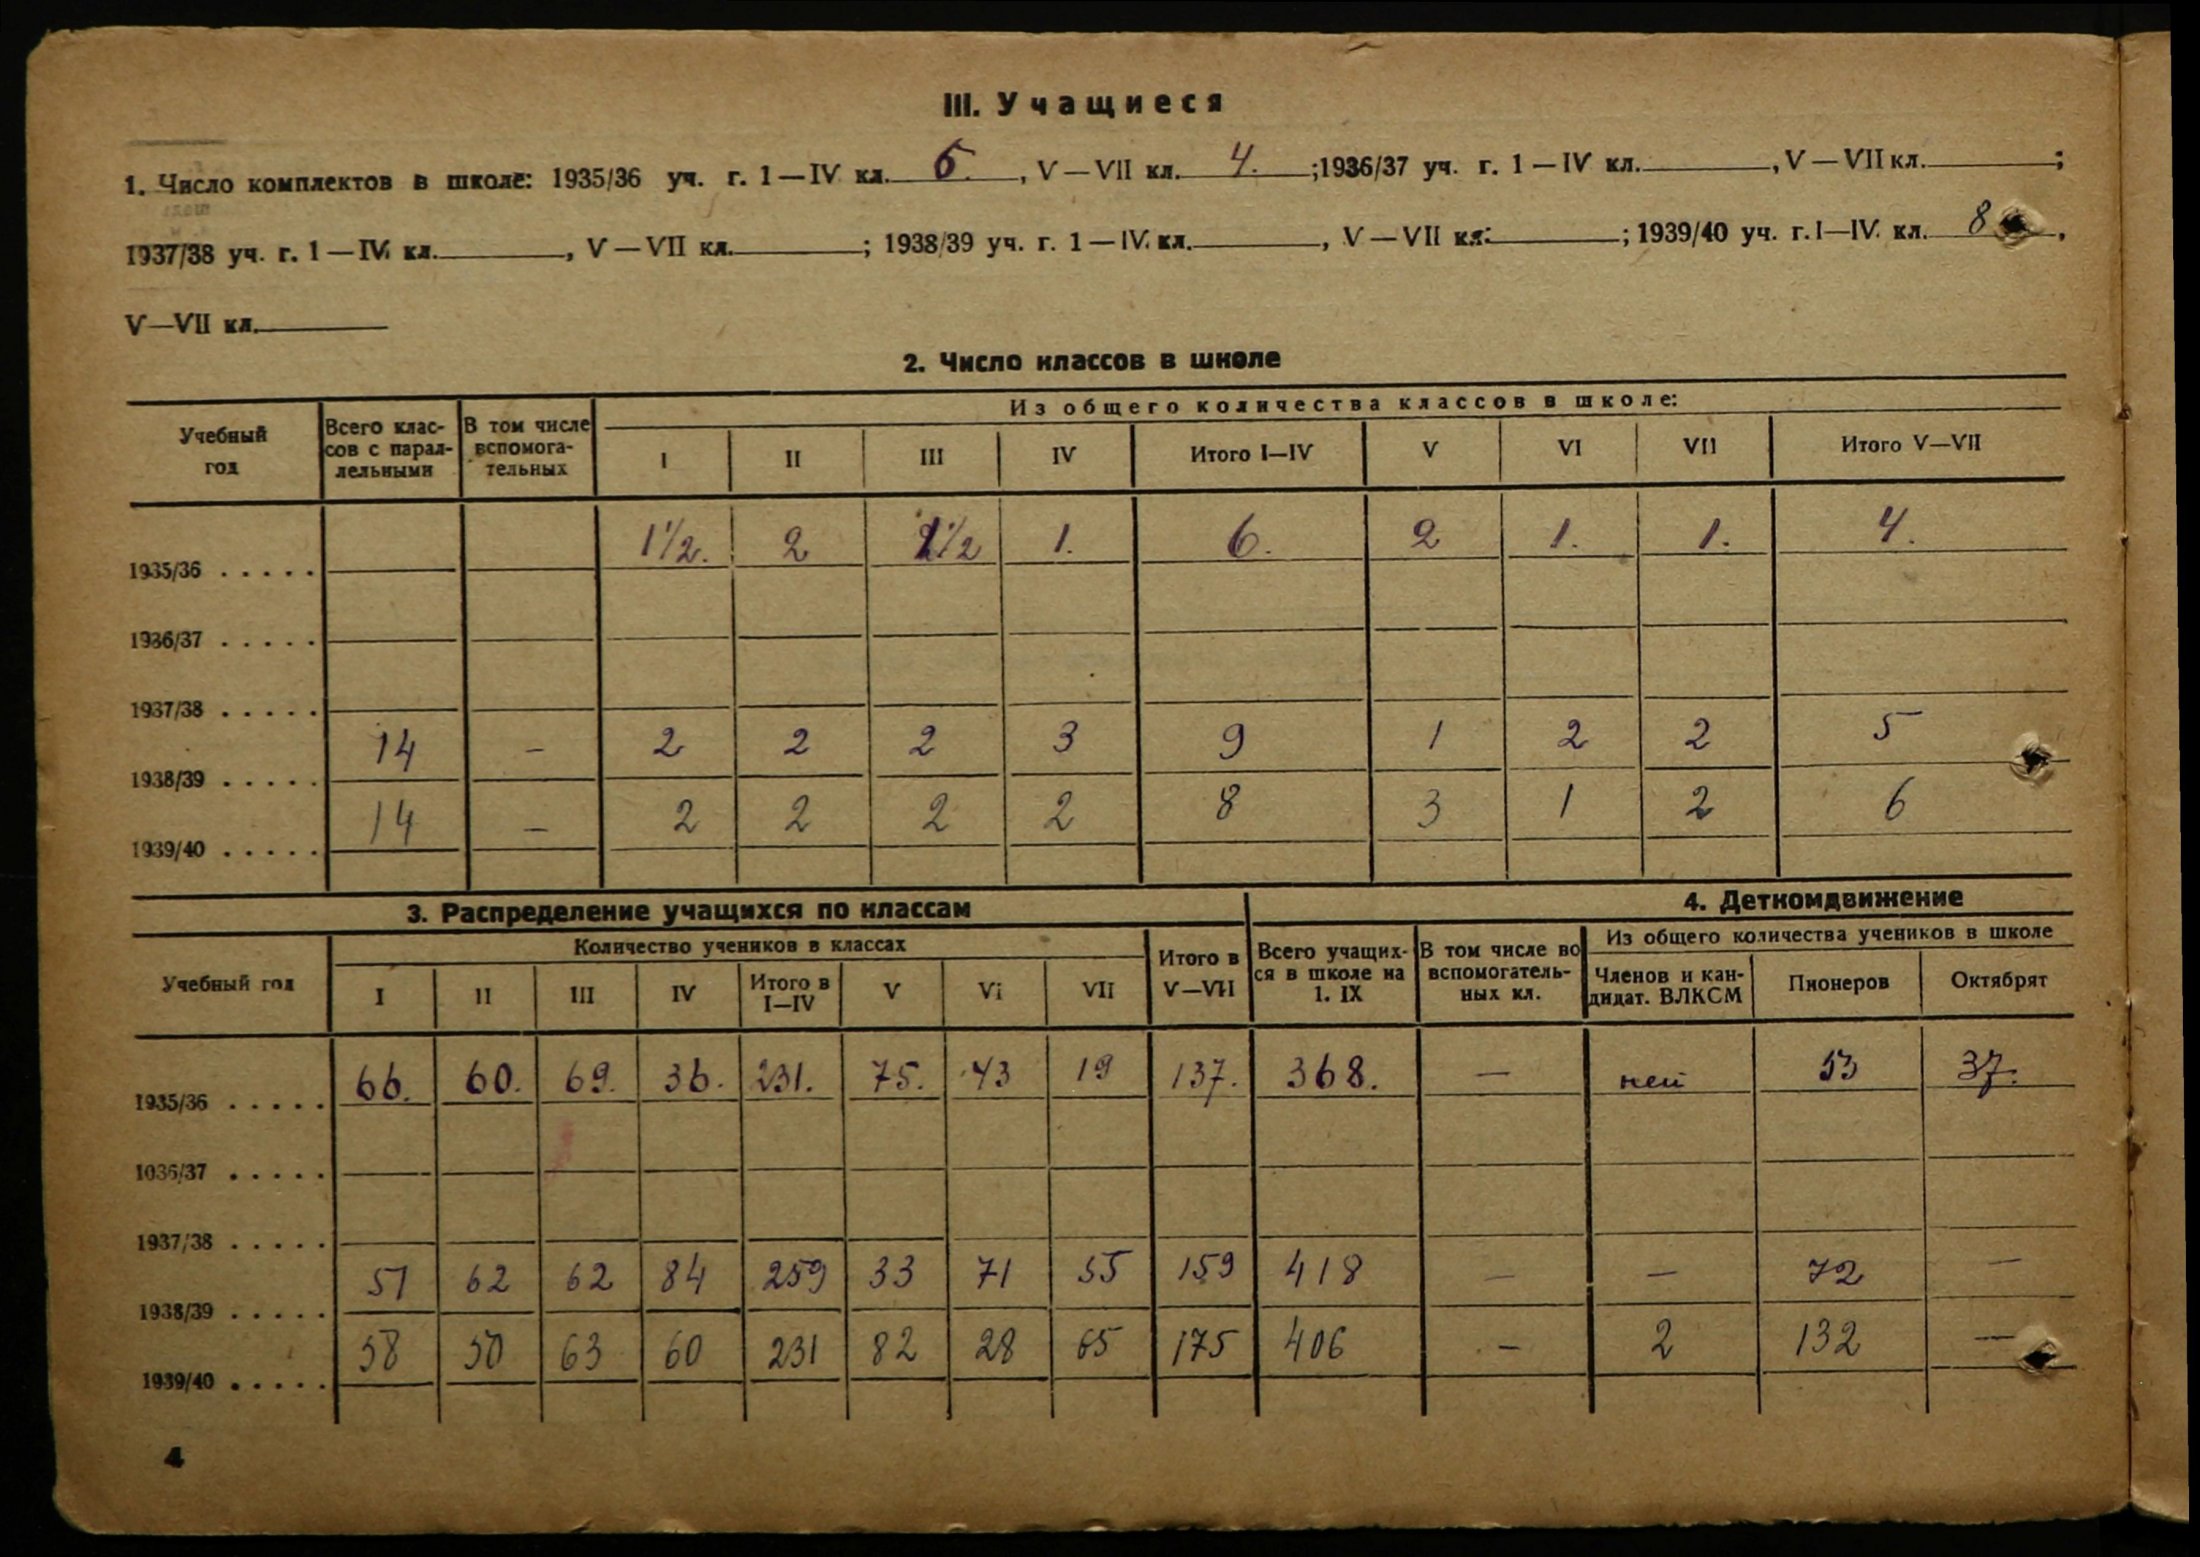 III. Учащиеся
1. Число комплектов в школе: 1935/36 уч. г. 1—IV кл. 6. , V—VII кл. 4. ; 1936/37 уч. г. 1—IV кл. , V—VII кл. ;
1937/38 уч. г. 1—IV кл. , V—VII кл. ; 1938/39 уч. г. 1—IV. кл. , V—VII кл. ; 1939/40 уч. г. I—IV. кл. 8 ,
V—VII кл.
2. Число классов в школе
Учебный год | Всего классов с параллельными | В том числе вспомогательных | Из общего количества классов в школе:
I | II | III | IV | Итого I—IV | V | VI | VII | Итого V—VII
1935/36 . . . . . 1½. 2 1½ 1. 6. 2 1. 1. 4.
1936/37 . . . . .
1937/38 . . . . .
1938/39 . . . . . 14 – 2 2 2 3 9 1 2 2 5
1939/40 . . . . . 14 – 2 2 2 2 8 3 1 2 6
3. Распределение учащихся по классам
4. Деткомдвижение
Учебный год | Количество учеников в классах | Итого в V—VII | Всего учащихся в школе на 1. IX | В том числе во вспомогательных кл. | Из общего количества учеников в школе
I | II | III | IV | Итого в I—IV | V | Vi | VII | Членов и кандидат. ВЛКСМ | Пионеров | Октябрят
1935/36 . . . . . 66. 60. 69. 36. 231. 75. 43 19 137. 368. — нет 53 37.
1036/37 . . . . .
1937/38 . . . . .
1938/39 . . . . . 51 62 62 84 259 33 71 55 159 418 — — 72 —
1939/40 . . . . . 58 50 63 60 231 82 28 65 175 406 – 2 132 —
4